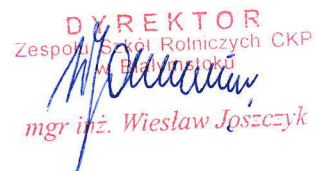 DYREKTOR
Zespołu Szkół Rolniczych CKP
w Białymstoku
mgr inż. Wiesław Joszczyk